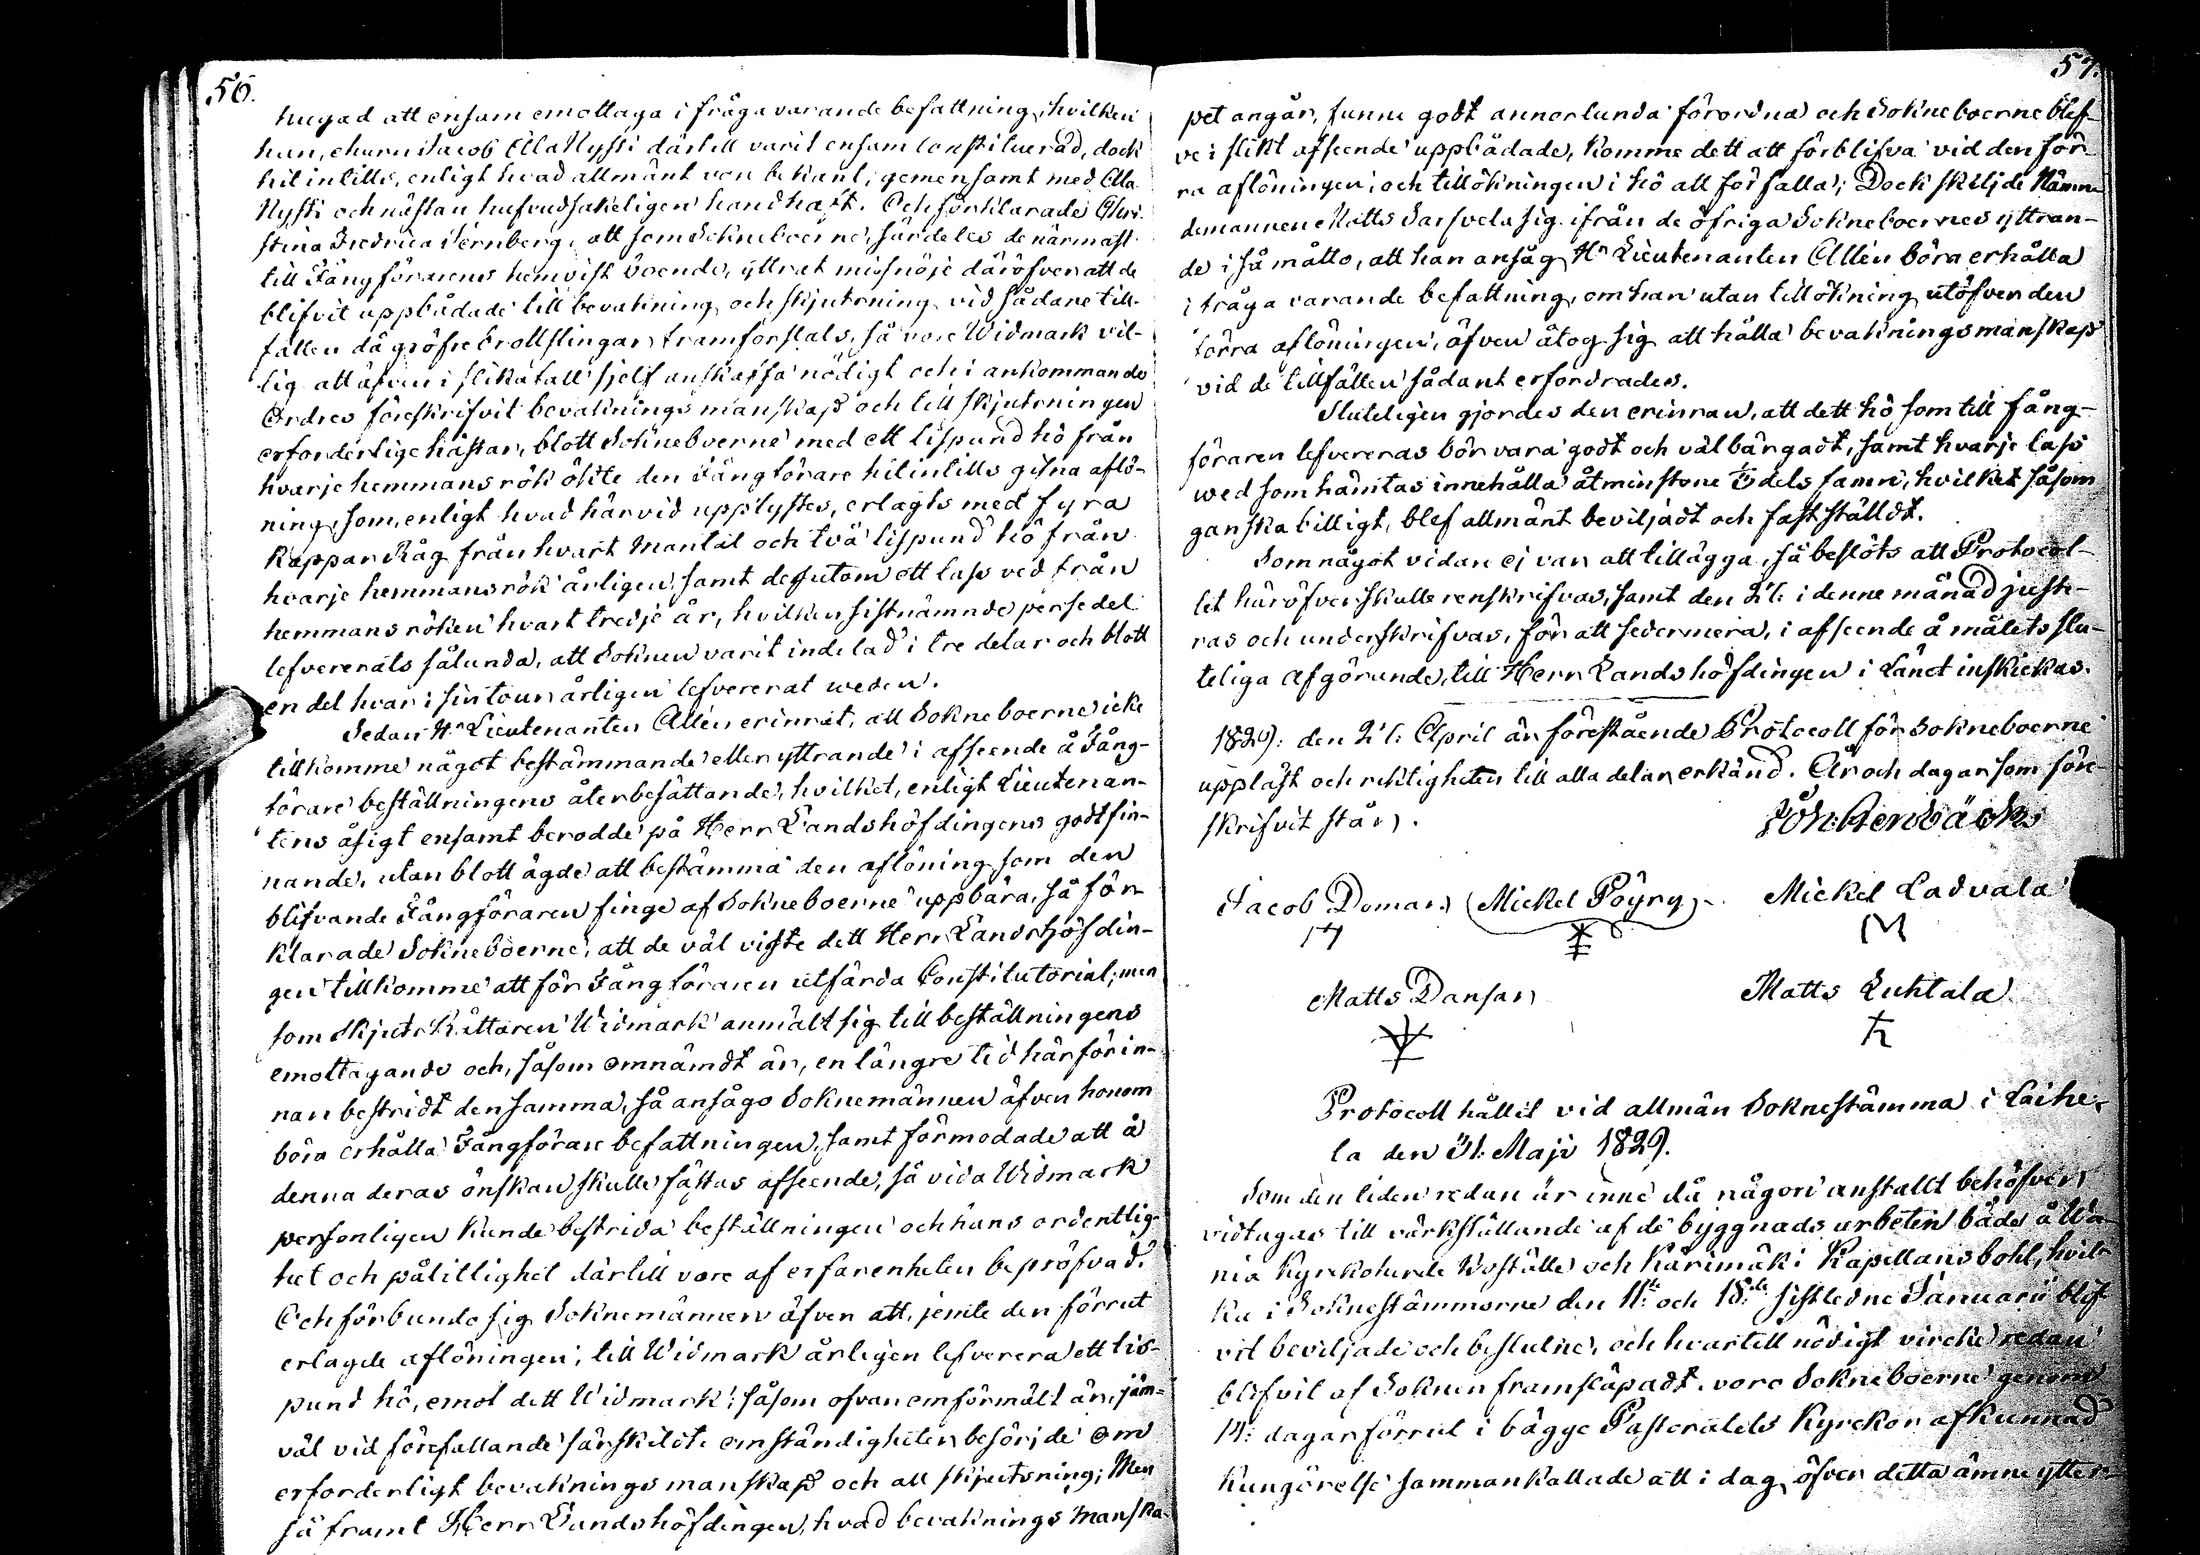 56.
hugad att ensam emottaga i fråga varande befattning, hvilken
han, ehuru Jacob Ala Nyssi därtill varit ensam constituerad, dock
hit intills, enligt hvad allmänt var bekant, gemensamt med Ala
Nyssi och nästan hufvudsakeligen handhaft. Och förklarade Chri-
stina Fredrica Sernberg, att som Sokneboerne, särdeles de närmast
till Fångförarens hemvist boende, yttrat missnöje däröfver att de
blifvit uppbådade till bevakning och skjutsning vid sådane till-
fällen då gröfre brottslingar framforslats, så vore Widmark vil-
lig att äfven i slika fall sjelf anskaffa nödigt och i ankommande
Ordres föreskrifvit bevaknings manskap och till skjutsningen
erforderlige hästar, blott Sokneboerne med ett lispund hö från
hvarje hemmans rök ökte den Fångförare hitintills gifna aflö-
ning, som, enligt hvad härvid upplystes, erlagts med fyra
Kappar Råg från hvart Mantal och två lispund hö från
hvarje hemmans rök årligen, samt dessutom ett lass ved från
hemmans röken hvart tredje år, hvilken sistnämnde persedel
lefvererats sålunda, att Soknen varit indelad i tre delar och blott
en del hvar i sin tour årligen lefvererat weden.
Sedan Hr Lieutenanten Allén erinrat, att Sokneboerne icke
tillkomme något bestämmande eller yttrande i afseende å Fång-
förare beställningens återbesättande, hvilket, enligt Lieutenan-
tens åsigt ensamt berodde på Herr Landshöfdingens godtfin-
nande, utan blott ägde att bestämma den aflöning som den
blifvande Fångföraren finge af Sokneboerne uppbära, så för-
klarade Sokneboerne, att de väl viste dett Herr Landshöfdin-
gen tillkomme att för Fångföraren utfärda Constitutorial; men
som Skjuts Rättaren Widmark anmält sig till beställningens
emottagande och, såsom omnämdt är, en längre tid härförin-
nan bestridt densamma, så ansågo Soknemännen äfven honom
böra erhålla Fångförare befattningen, samt förmodade att å
denna deras önskan skulle fästas afseende, så vida Widmark
personligen kunde bestrida beställningen och hans ordentlig-
het och pålitlighet därtill vore af erfarenheten bepröfvad.
Och förbundo sig Soknemännen äfven att, jemte den förrut
erlagde aflöningen, till Widmark årligen lefverera ett lis-
pund hö, emot dett Widmark, såsom ofvan omförmält är, jäm-
väl vid förefallande särskildte omständigheter besörjde om
erforderligt bevaknings manskap och all skjutsning; Men
så framt Herr Landshöfdingen, hvad bevaknings manska-
57.
pet angår, funne godt annorlunda förordna och Sokneboerne blef-
ve i slikt afseende uppbådade, komme dett att förblifva vid den för-
ra aflöningen, och tillökningen i hö att förfalla; Dock skiljde Nämn-
demannen Matts Sarvela sig ifrån de öfriga Sokneboernes yttran-
de i så måtto, att han ansåg Hr Lieutenanten Allén böra erhålla
i fråga varande befattning, om han utan tillökning utöfver den
förra aflöningen, äfven åtog sig att hålla bevakningsmanskap
vid de tillfällen sådant erfordrades.
Sluteligen gjordes den erinran, att dett hö som till fång-
föraren lefvereras bör vara godt och välbärgadt, samt hvarje lass
wed som hämtas innehålla åtminstone dels famn, hvilket såsom
ganska billigt, blef allmänt beviljadt och fastställdt.
Som något vidare ej var att tillägga, så beslöts att Protocol-
let häröfver skulle renskrifvas, samt den 2i: i denne månad juste-
ras och underskrifvas, för att sedermera, i afseende å målets slu-
teliga afgörande, till Herr Landshöfdingen i Länet inskickas.
1829: den 2i: April är förestående Protocoll för Sokneboerne
uppläst och riktigheten till alla delar erkänd. År och dagar som före-
skrifvit står.
Joh: Aenbäck
Jacob Domars Mickel Pöyry Mickel Ladvala
Matts Dansar Matts Luhtala
Protocoll hållit vid allmän Soknestämma i Laihe-
la den 31: Maji 1829.
Som den tiden redan är inne då någon anstallt behöfver
vidtagas till värkställande af de byggnads arbeten både å Wa-
nia Kyrkoherde Boställe och Kärimäki Kapellans bohl, hvil-
ka i Soknestämmorne den 11te och 18de sistledne Januarii blif-
vit beviljade och beslutne, och hvartill nödigt vircke redan
blifvit af Soknen framsläpadt, voro Sokneboerne genom
14: dagar förrut i bägge Pastoratets Kyrckor afkunnad
Kungörelse sammankallade att i dag öfver detta ämne ytter-